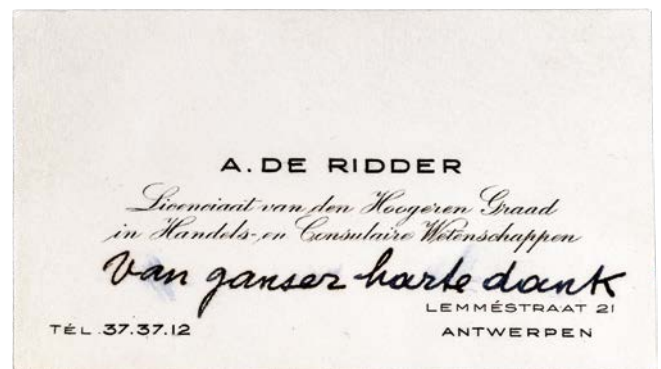 A. DE RIDDER
Licenciaat van den Hoogeren Graad
in Handels- en Consulaire Wetenschappen
van ganser harte dank
LEMMÉSTRAAT 21
TÉL. 37.37.12 ANTWERPEN